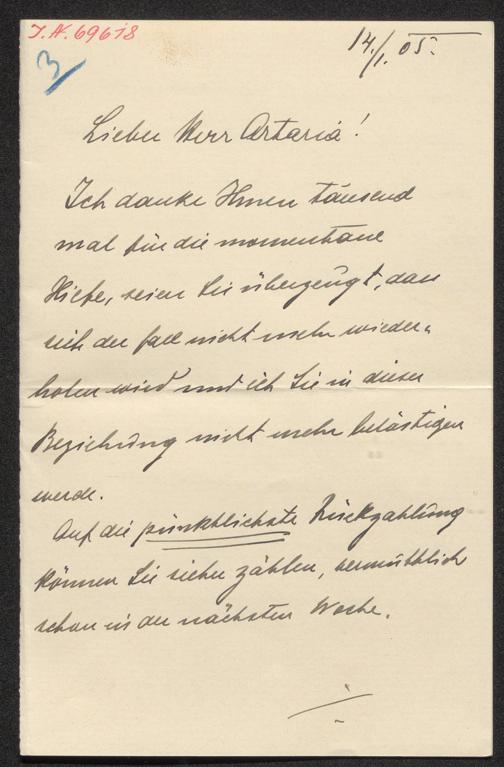 I.N. 69618
3
14./1. 05.
Lieber Herr Artaria!
Ich danke Ihnen tausend
mal für die momentane
Hilfe, seien Sie überzeugt, dass
sich der Fall nicht mehr wieder-
holen wird und ich Sie in dieser
Beziehung nicht mehr belästigen
werde.
Auf die pünktlichste Rückzahlung
können Sie sicher zählen, vermuthlich
schon in der nächsten Woche.